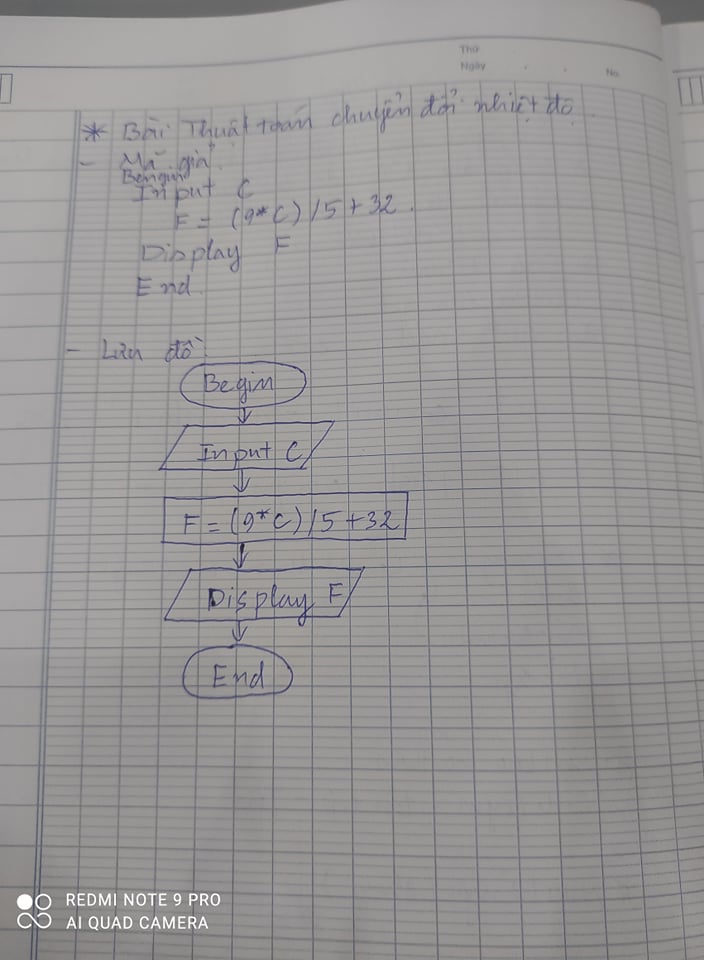 Thứ
Ngày . . No.
* Bài Thuật toán chuyển đổi nhiệt độ.
- Mã giả
Bengin
Input C
F = (9*C)/5+32.
Display F
End.
- Lưu đồ:
Begin
Input C
F = (9*C)/5+32
Display F
End
REDMI NOTE 9 PRO
AI QUAD CAMERA